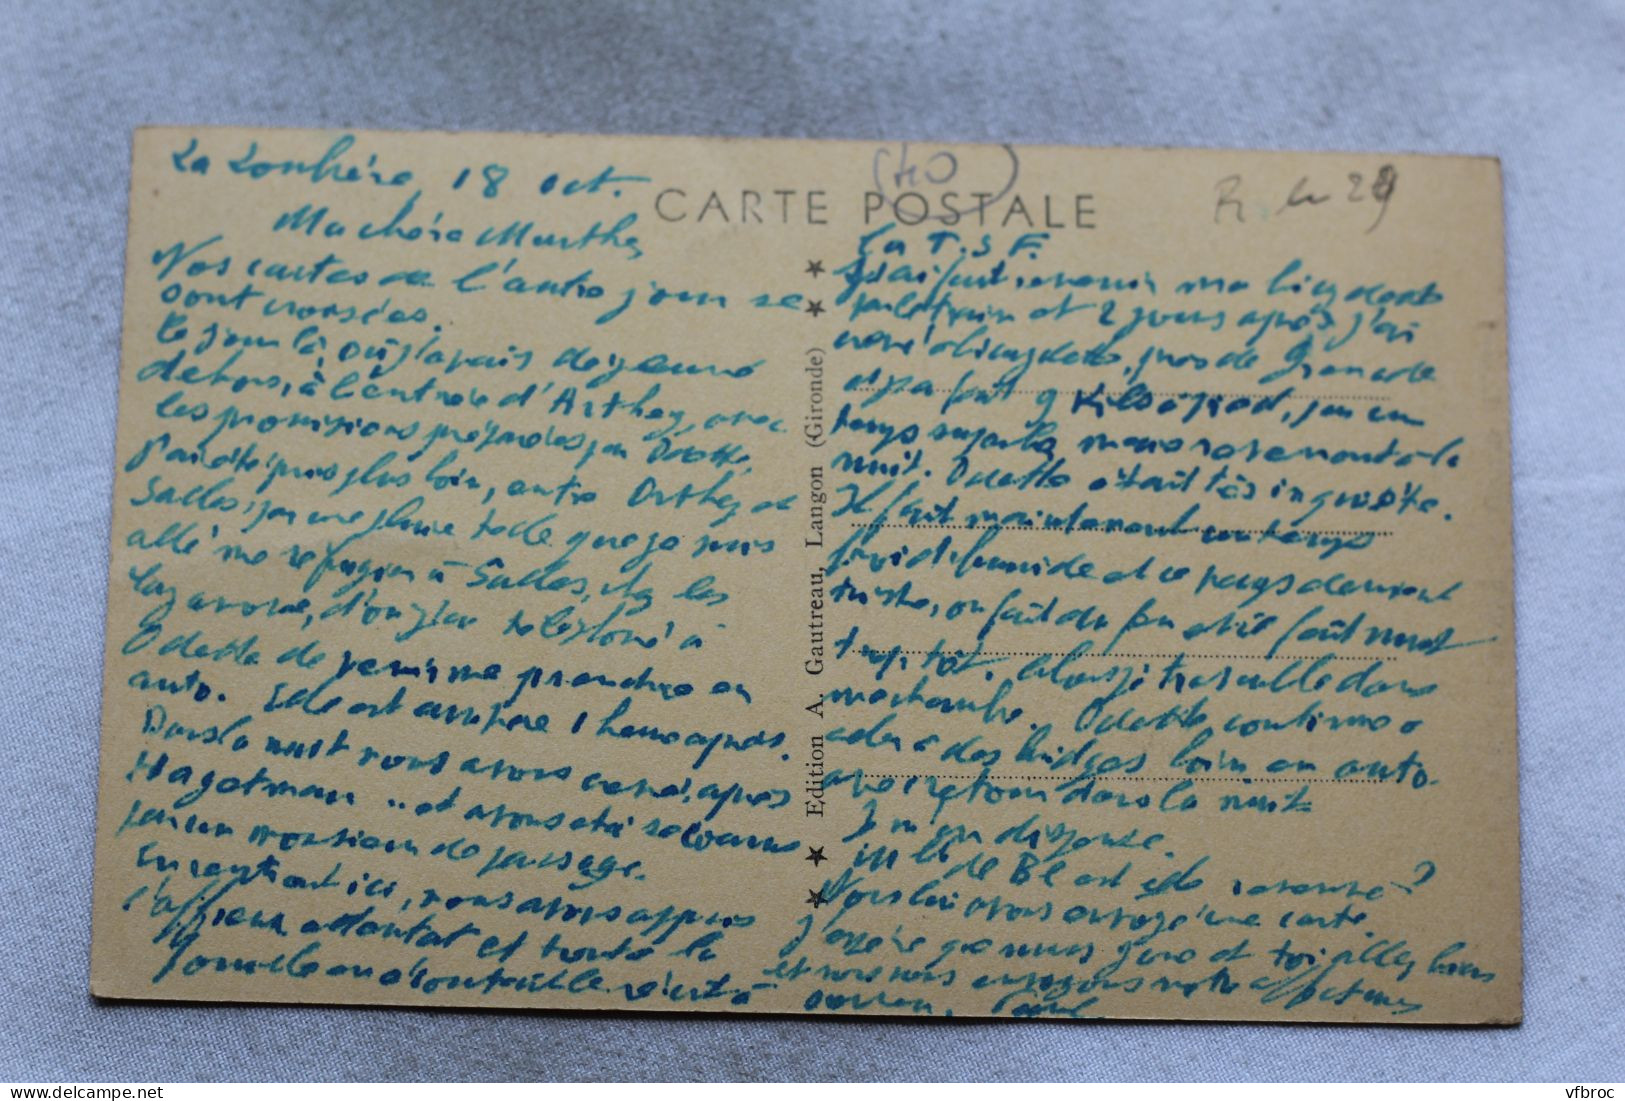 La Loubère, 18 oct.
Ma chère Marthe,
Nos cartes de l'autre jour se
sont croisées.
Le jour là, où j'avais déjeuné
dehors, à l'entrée d'Arthez, avec
les provisions préparées par Odette,
j'ai été pris plus loin, entre Arthez de
Salles, par une pluie telle que je suis
allé me réfugier à Salles, chez les
d'où j'ai téléphoné à
Odette de venir me prendre en
auto. Elle est arrivée 1 heure après.
Dans la nuit nous avons versé, après
Hagetmau .. et avons été secourus
par un monsieur de passage.
En rentrant ici, nous avons appris
l'affreux attentat et toute la
en a été
CARTE POSTALE
(40)
R
29
La T.S.F.
J'ai fait revenir ma bicyclette
par le train et 2 jours après j'ai
versé à bicyclette, près de Grenade
et j'ai fait 9 Kils à pied, par un
temps superbe, mais
nuit. Odette était très inquiète.
Il fait maintenant un temps
froid, humide et ce pays devient
triste, on fait du feu et il fait nuit
trop tôt. Alors je travaille dans
ma chambre. Odette continue à
aller à des bridges loin, en auto
avec retour dans la nuit.
Mlle de B. est elle revenue ?
Nous lui avons envoyé une carte.
J'espère que mon Jane et toi allez bien
et nous vous envoyons notre affectueux
★ ★ Edition A. Gautreau, Langon (Gironde) ★ ★
vfbroc